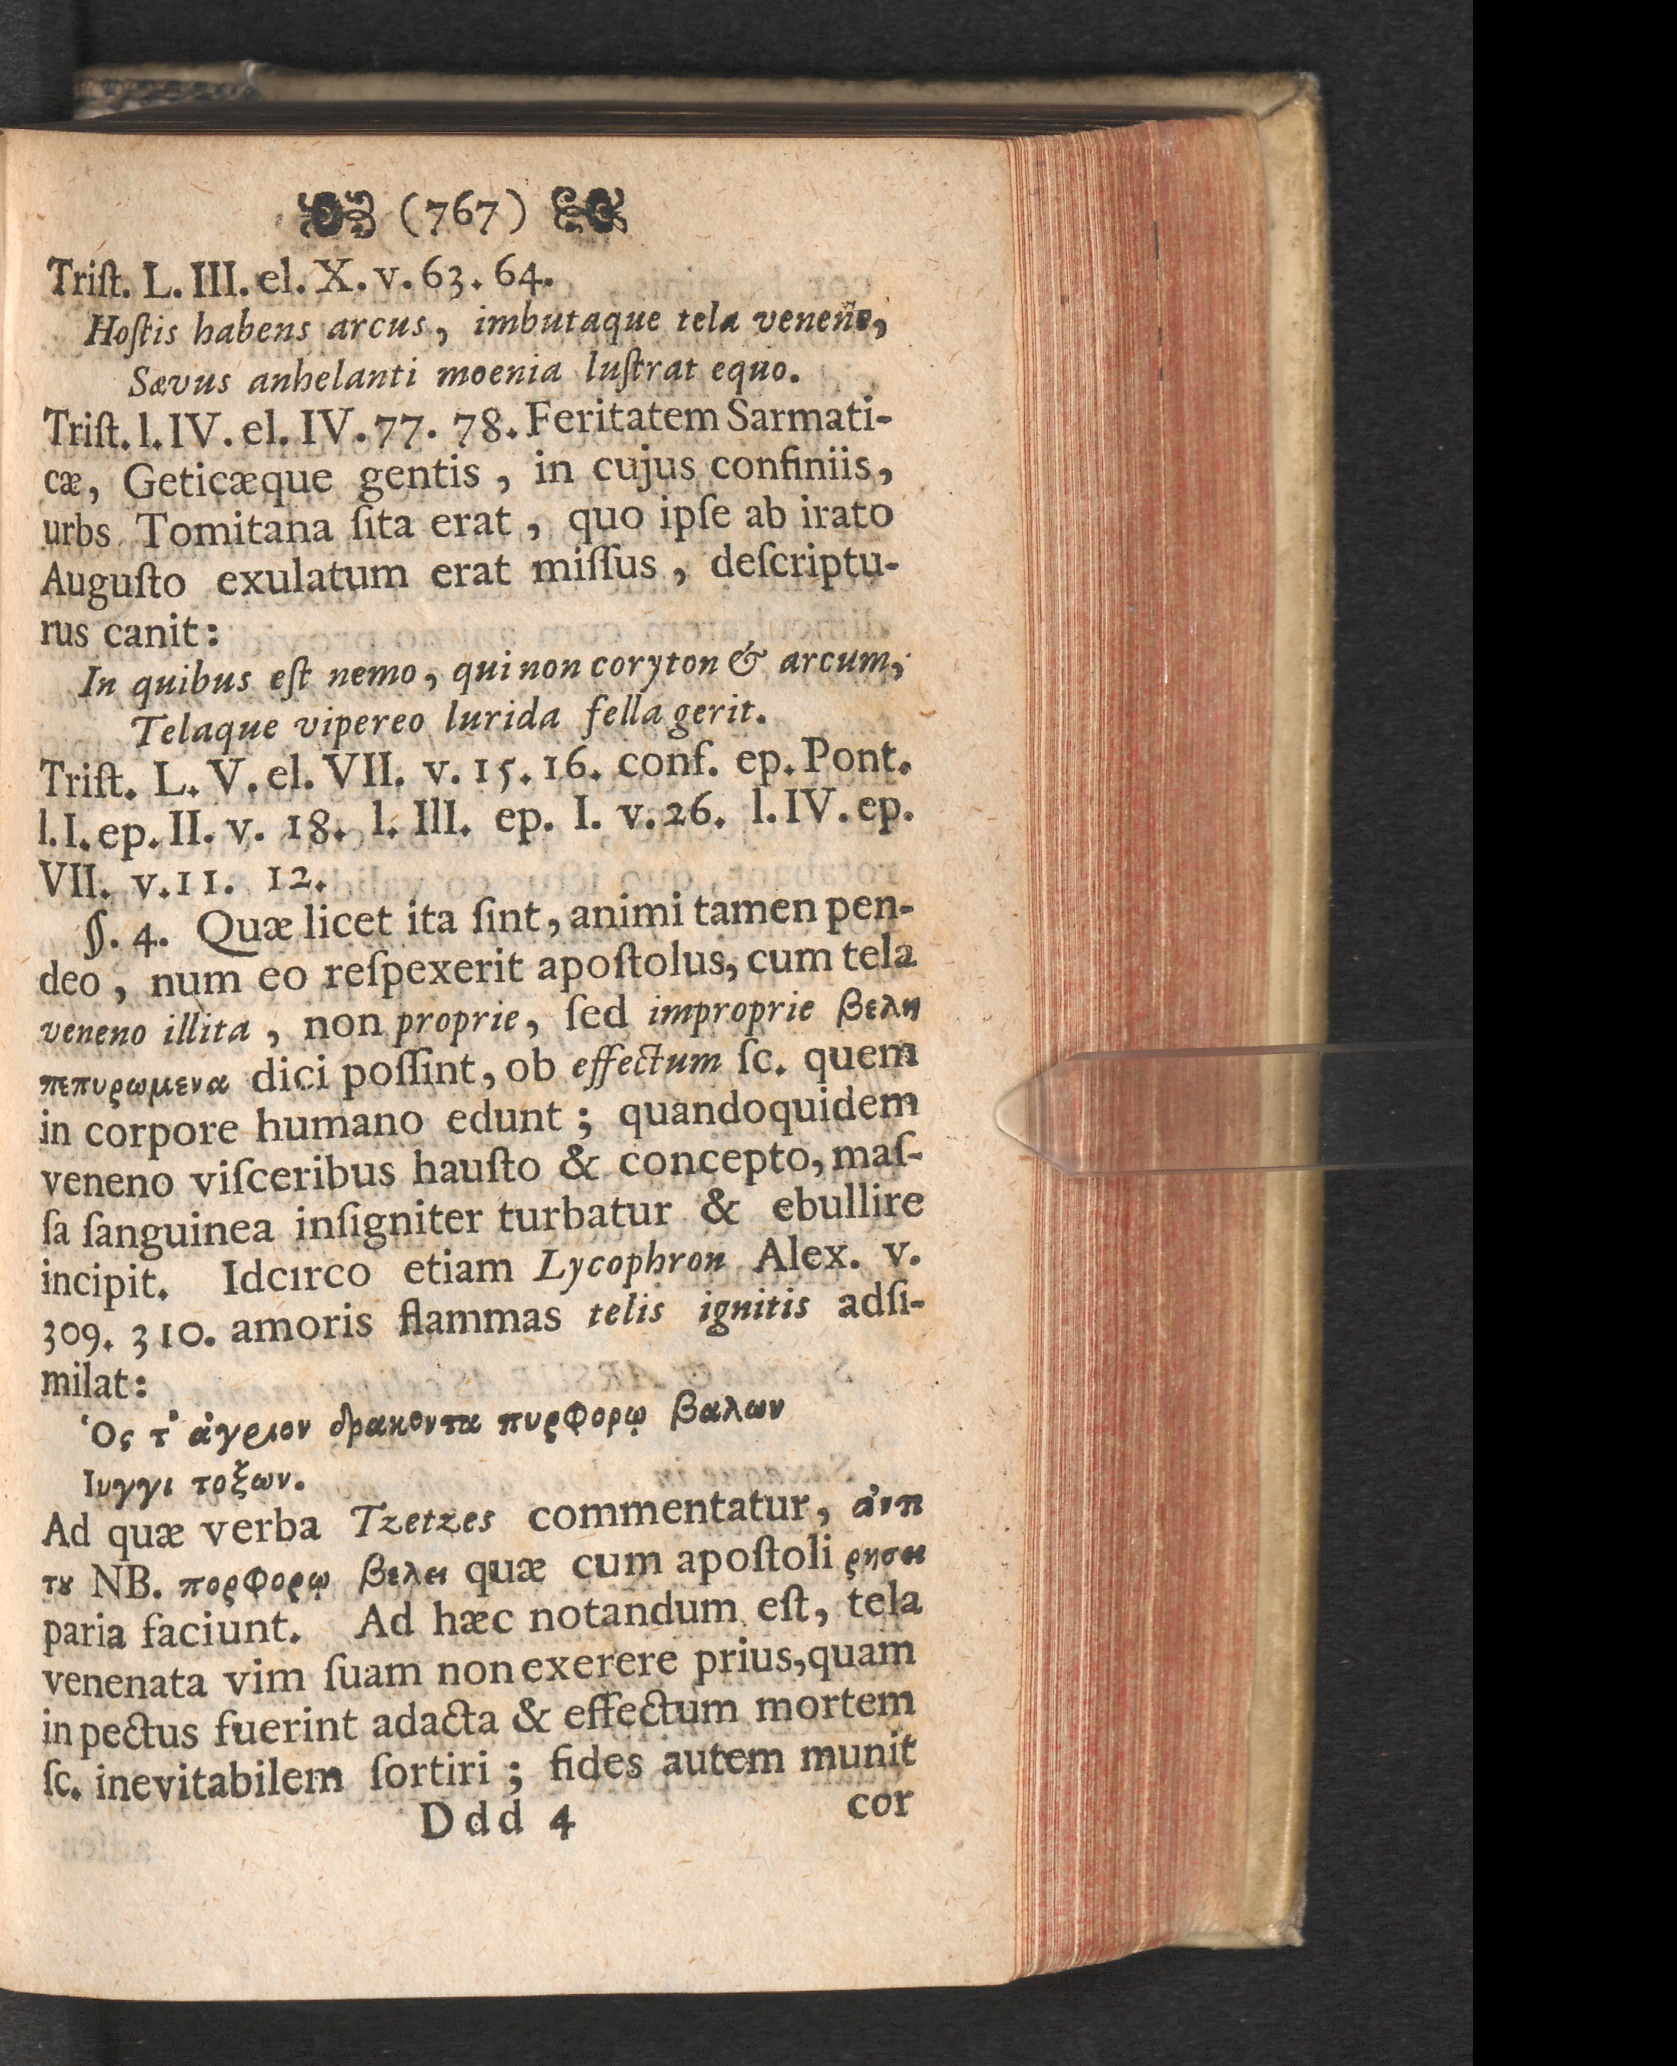 (767)
Triſt. L. III. el. X. v. 63. 64.
Hoſtis habens arcus, imbutaque tela veneno,
Sævus anhelanti moenia luſtrat equo.
Triſt. l. IV. el. IV. 77. 78. Feritatem Sarmati-
cæ, Geticæque gentis, in cujus confiniis,
urbs Tomitana ſita erat, quo ipſe ab irato
Auguſto exulatum erat miſſus, deſcriptu-
rus canit:
In quibus eſt nemo, qui non coryton & arcum,
Telaque vipereo lurida fella gerit.
Triſt. L. V. el. VII. v. 15. 16. conf. ep. Pont.
l. I. ep. II. v. 18. l. III. ep. I. v. 26. l. IV. ep.
VII. v. 11. 12.
§. 4. Quæ licet ita ſint, animi tamen pen-
deo, num eo reſpexerit apoſtolus, cum tela
veneno illita, non proprie, ſed improprie βελη
πεπυρωμενα dici poſſint, ob effectum ſc. quem
in corpore humano edunt; quandoquidem
veneno viſceribus hauſto & concepto, maſ-
ſa ſanguinea inſigniter turbatur & ebullire
incipit. Idcirco etiam Lycophron Alex. v.
309. 310. amoris flammas telis ignitis adſi-
milat:
Ὁς τ' ἀγριον δρακοντα πυρφορῳ βαλων
Ιυγγι τοξων.
Ad quæ verba Tzetzes commentatur, ἀντι
τȣ NB. πορφορῳ βελει quæ cum apoſtoli ρησει
paria faciunt. Ad hæc notandum eſt, tela
venenata vim ſuam non exerere prius, quam
in pectus fuerint adacta & effectum mortem
ſc. inevitabilem ſortiri; fides autem munit
Ddd 4 cor